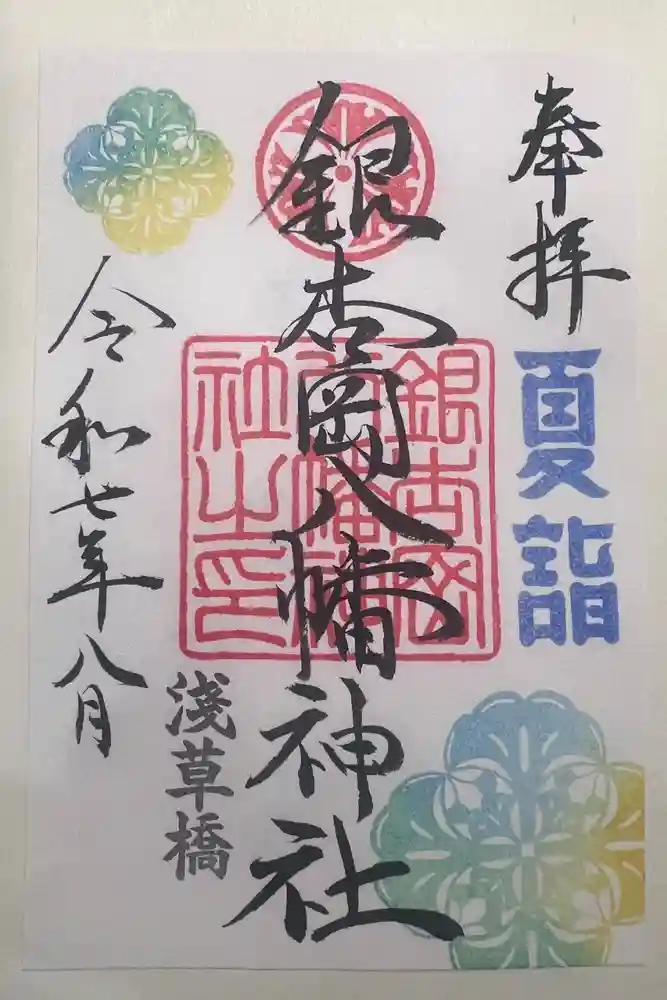 奉拝
夏詣
銀杏岡八幡神社
銀杏岡八幡神社之印
浅草橋
令和七年八月